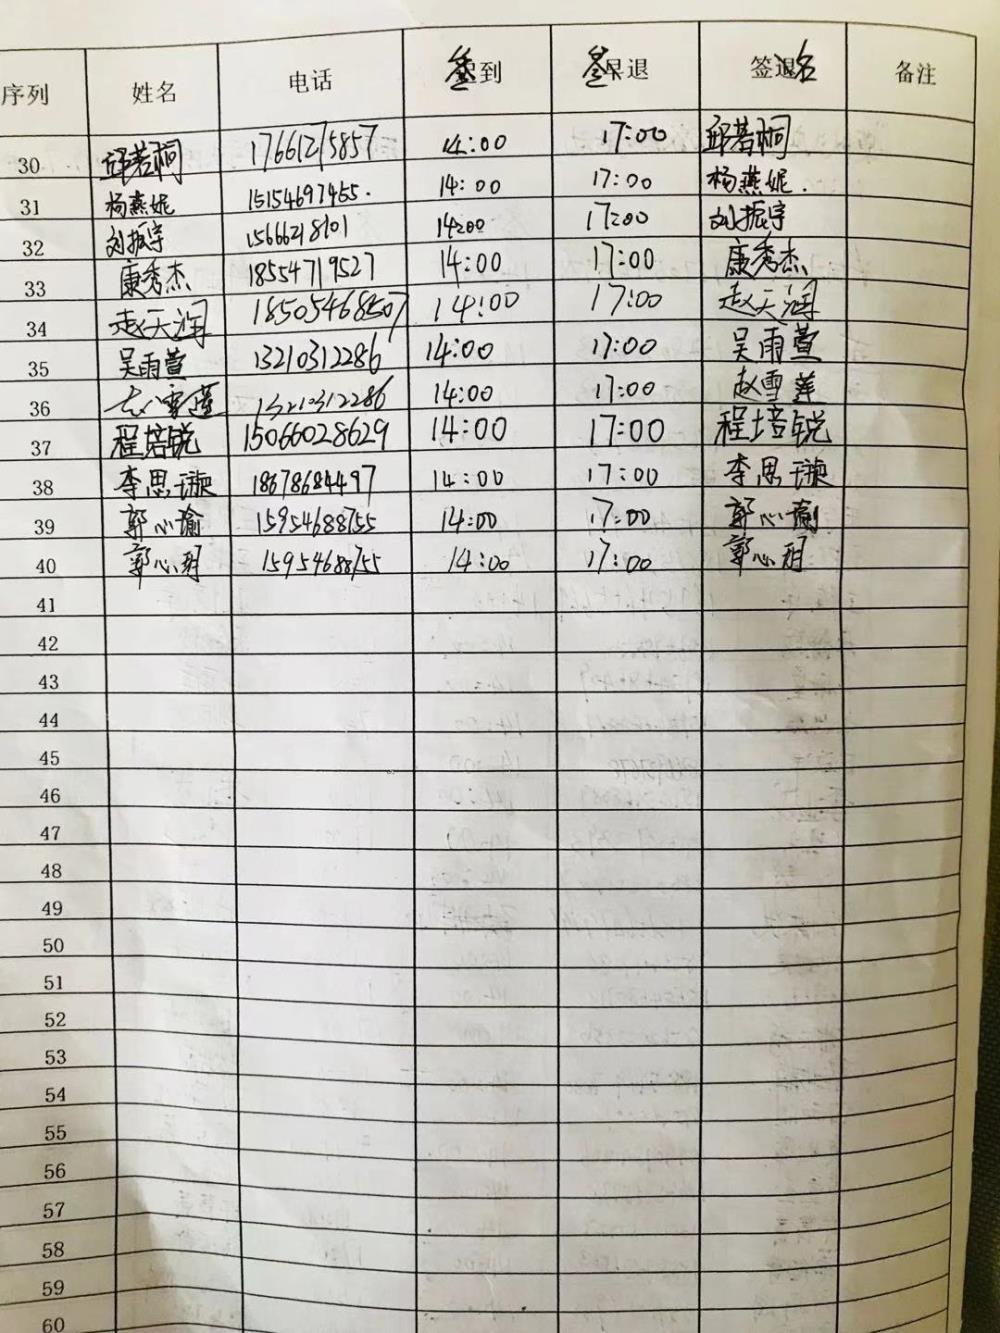 序列 姓名 电话 签到 签早退 签退名 备注
30 邱若桐 17661215857 14:00 17:00 邱若桐
31 杨燕妮 15154697455. 14:00 17:00 杨燕妮.
32 刘振宇 15666218101 14:00 17:00 刘振宇
33 康秀杰 18554719527 14:00 17:00 康秀杰
34 赵天润 14:00 17:00 赵天润
35 吴雨萱 13210312286 14:00 17:00 吴雨萱
36 赵雪莲 13210312286 14:00 17:00 赵雪莲
37 程培锐 15066028629 14:00 17:00 程培锐
38 李思璇 18678684497 14:00 17:00 李思璇
39 郭心瑜 15954688755 14:00 17:00 郭心瑜
40 郭心玥 15954688755 14:00 17:00 郭心玥
41
42
43
44
45
46
47
48
49
50
51
52
53
54
55
56
57
58
59
60